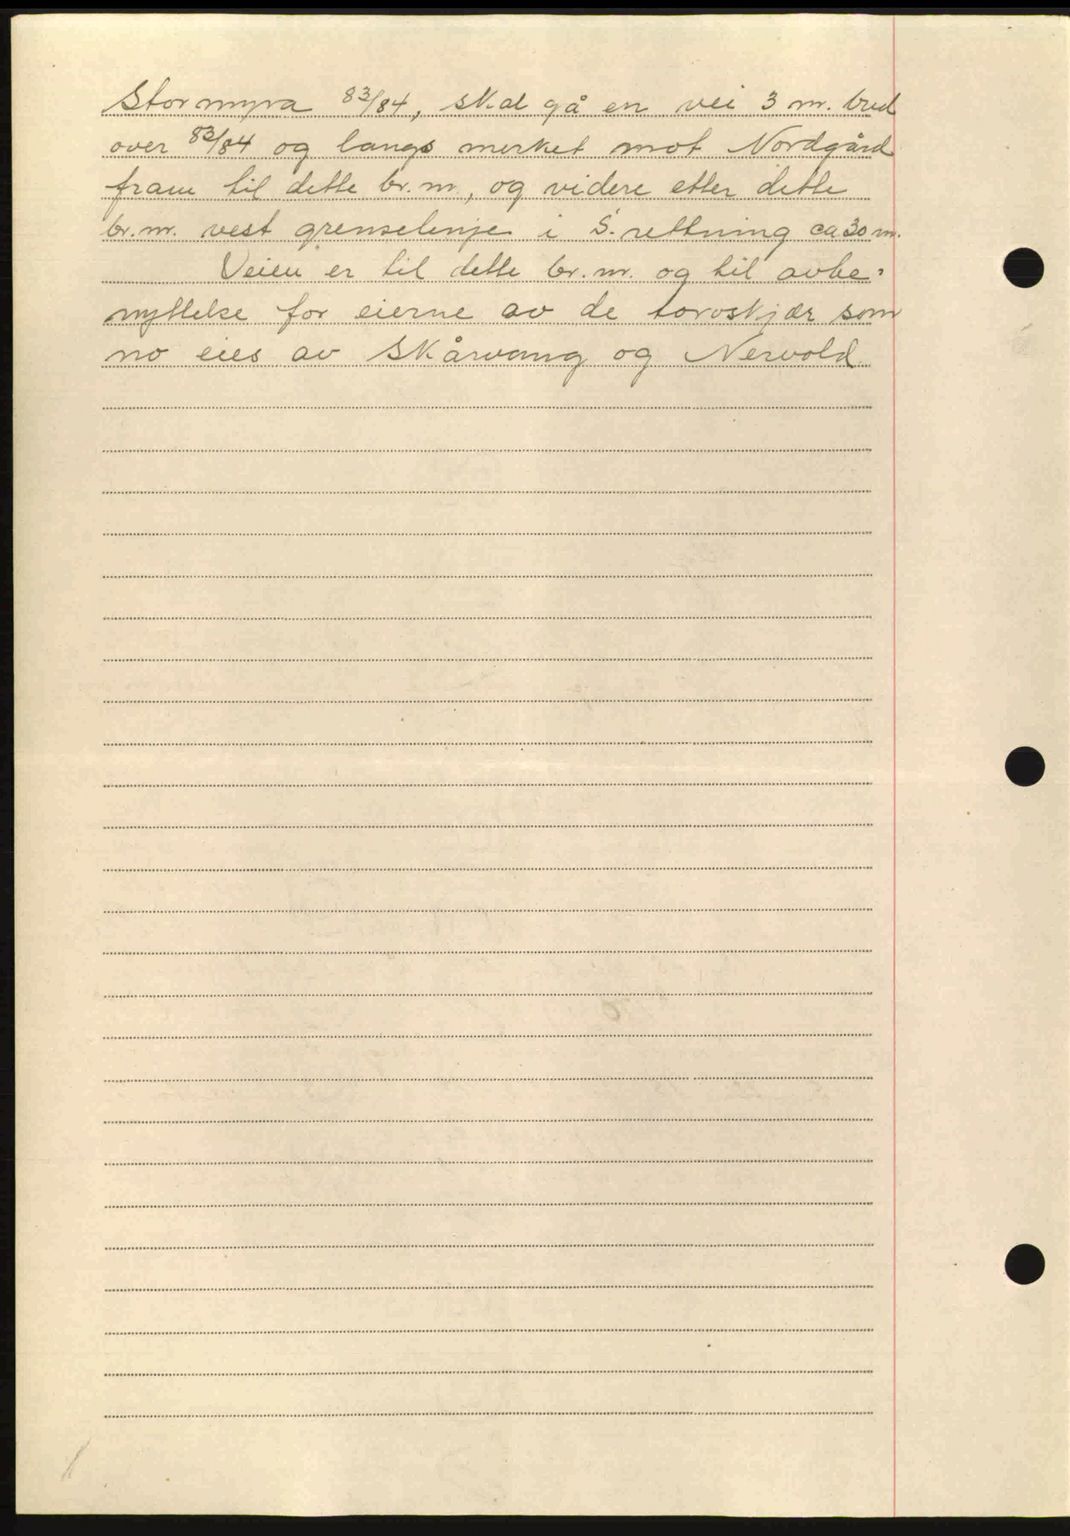 Stormyra 83/84, skal gå en vei 3 m. bred
over 83/84 og langs merket mot Nordgård
fram til dette br.nr., og videre etter dette
br.nr. vest grenselinje i S. rettning ca 30 m.
Veien er til dette br.nr. og til avbe-
nyttelse for eierne av de torvskjær som
no eies av Skårvang og Nervold